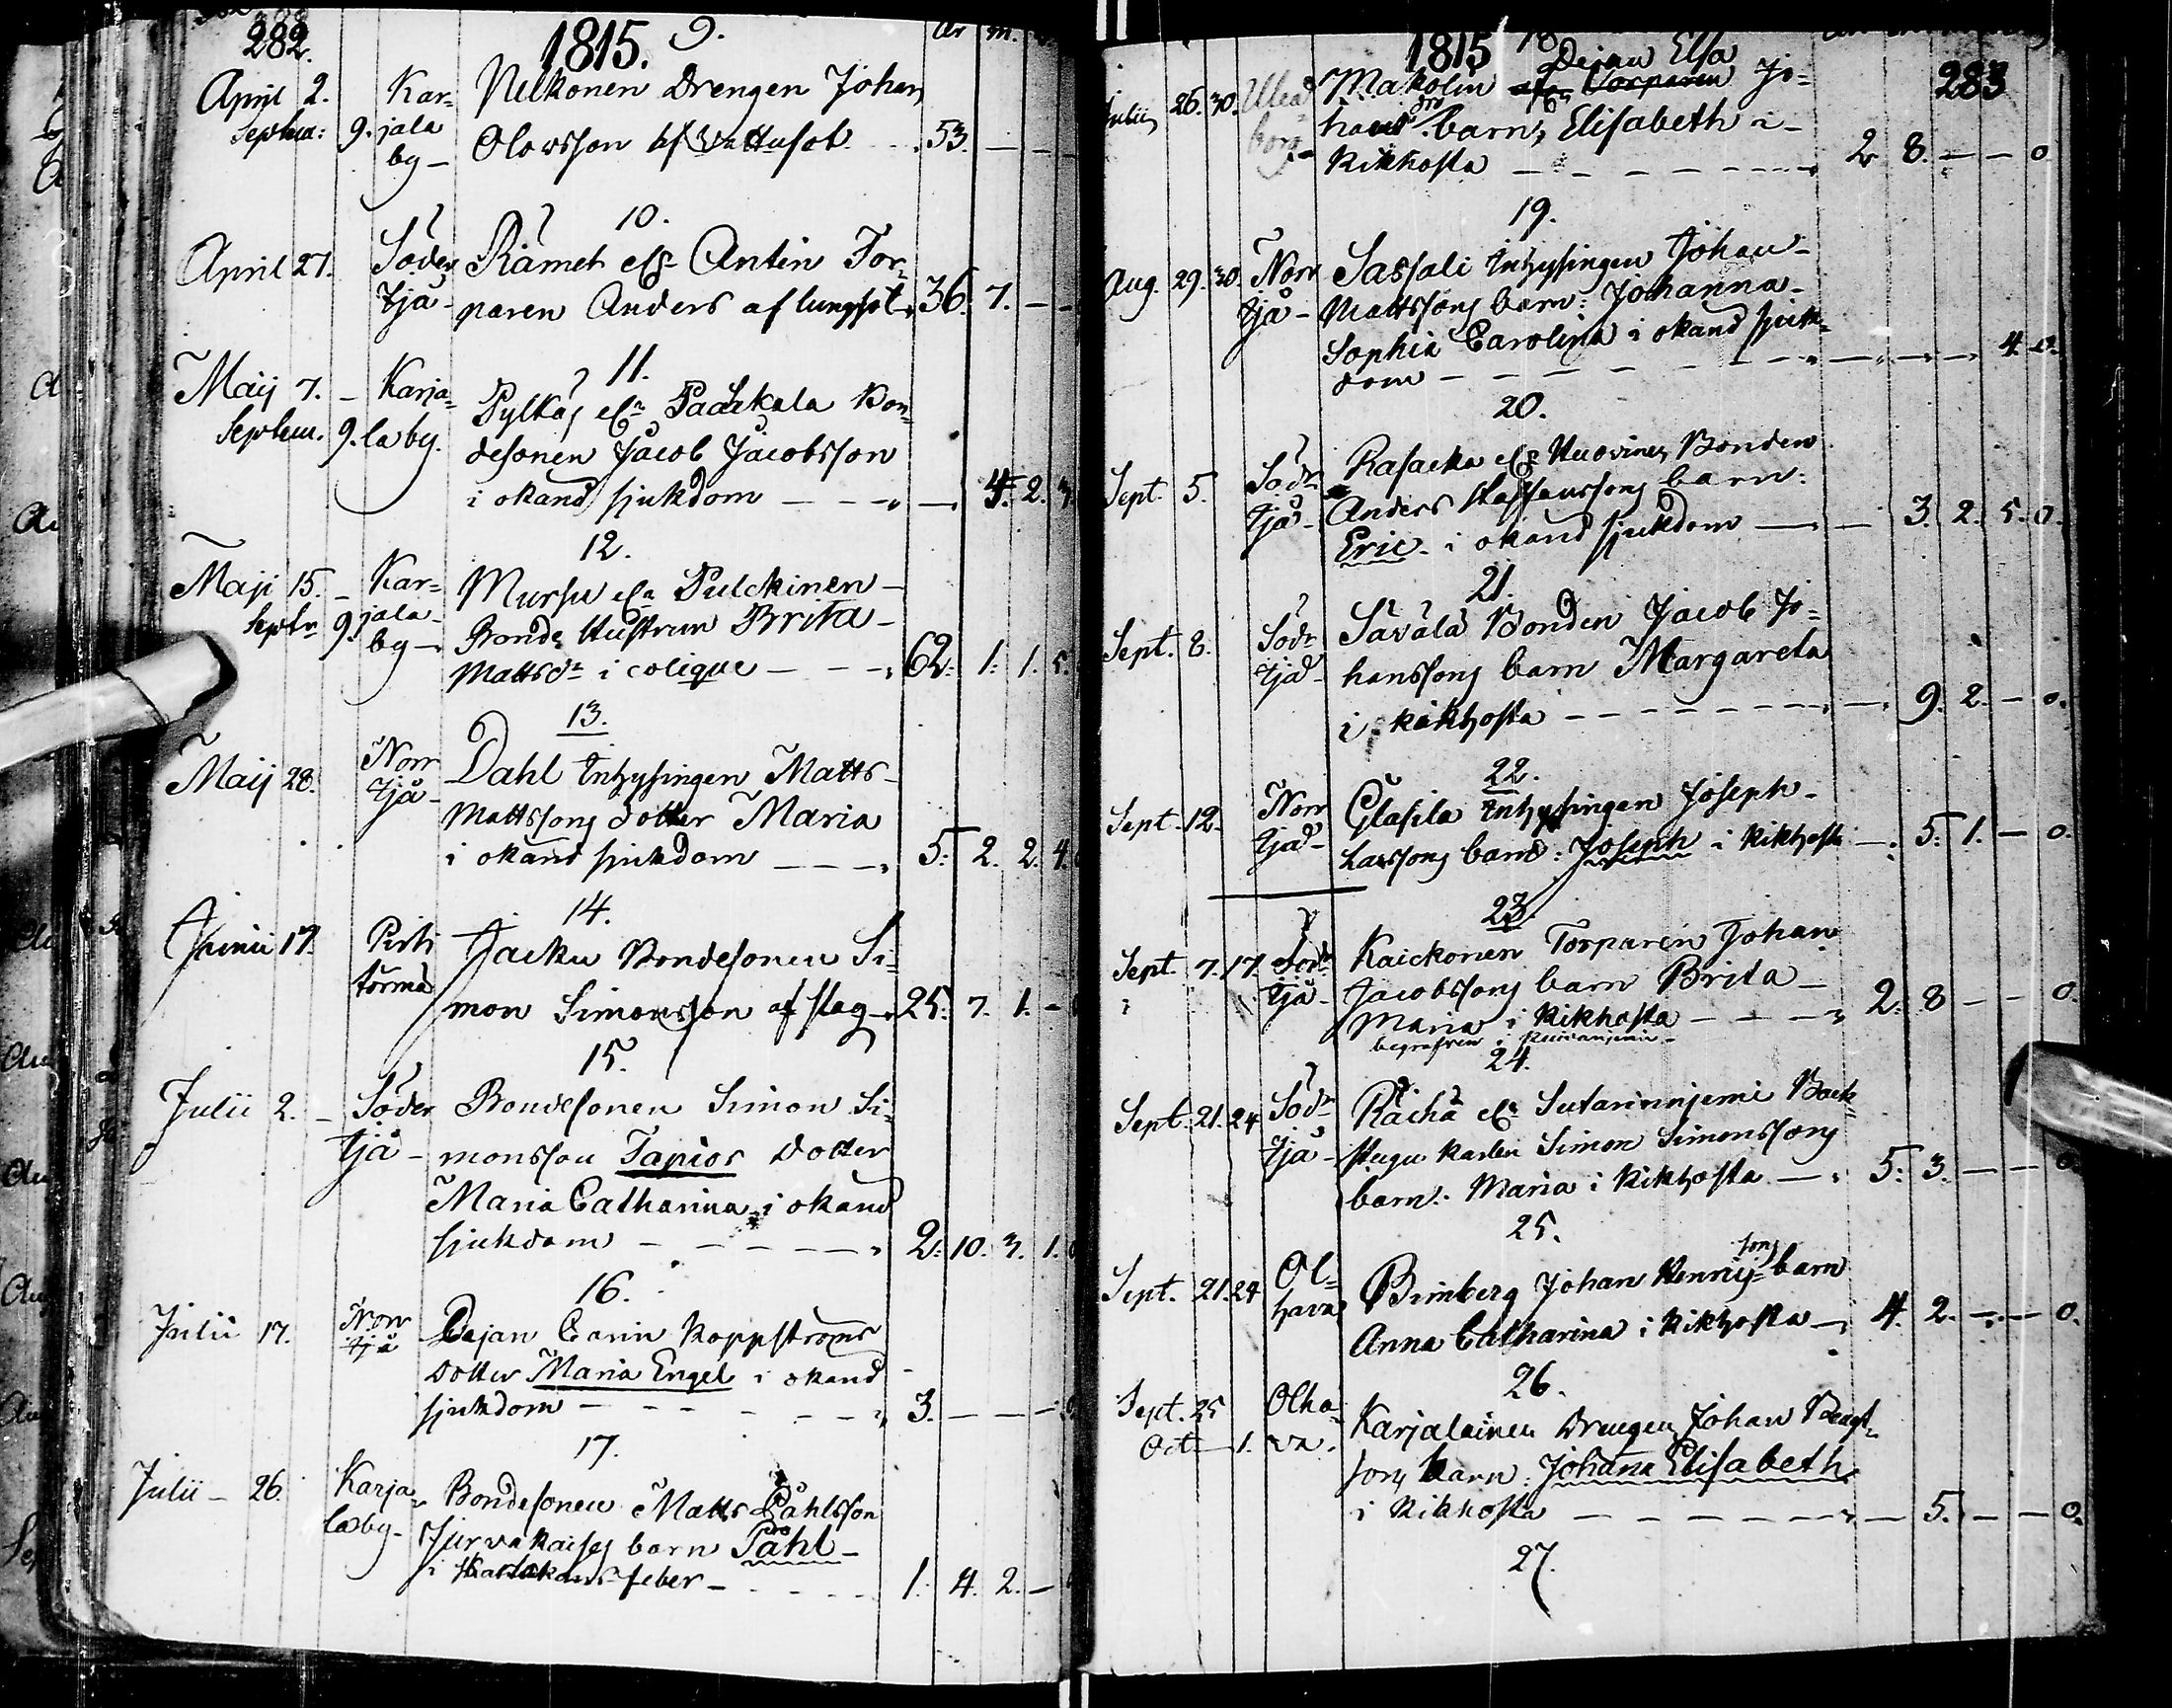 282. 1815. 9. år m.
April 2. Kar= Nelkonen Drengen Johan
Septem: 9. jala Olofsson af Vattusot 53. — —
by —
10.
April 27. Söder Rämet Antin Tor=
tjä — paren Anders af lungsot 36. 7. — —
11.
Maij 7. — Karja= Pylkäs Bon=
Septem. 9. la by. desonen Jacob Jacobsson
i okänd sjukdom — — — 4. 2. 3
12.
Maji 15. — Kar= Mursu Pulckinen —
Septr 9. jala — Bonde Hustrun Brita —
by — Mattsdr i colique — — — 62. 1. 1. 5.
13.
Maij 28. Norr Dahl Inhysingen Matts —
tjä — Mattssons dotter Maria
i okänd sjukdom — — — 5. 2. 2. 4.
14.
Junii 17. Pirti Jacku Bondesonen Si=
törmä mon Simonsson af slag — 25. 7. 1. —
15.
Julii 2. — Söder Bondesonen Simon Si=
tjä — monsson Tapios Dotter
Maria Catharina i okänd
sjukdom — — — — — 2. 10. 3. 1.
16.
Julii 17. Norr Dejan Carin Koppströms
tjä Dotter Maria Engel i okänd
sjukdom — — — — — 3. — — —
17.
Julii — 26. Karja= Bondesonen Matts Påhlsson
laby — Jurvakaises barn Påhl —
i feber — — — — 1. 4. 2. —
1815 18. 283
Dejan Elsa
Julii 26. 30. Uleå Makolin Torparen Jo=
borg — hans barn, Elisabeth i —
Kikhosta — — — — — 2 8. — — 0
19.
Aug. 29. 30. Norr Sassali Inhysingen Johan —
tjä — Mattssons barn: Johanna —
Sophia Carolina i okänd sjuk=
dom — — — — — — — 4. 0.
20.
Sept. 5. Södr Rasacka Huovinen Bonden
tjä — Anders Staffanssons barn:
Eric — i okänd sjukdom — — 3. 2. 5. 0.
21.
Sept. 8. Södr Sävälä Bonden Jacob Jo=
tjä — hanssons barn Margareta
i kikhosta — — — — — — 9. 2. — 0.
22.
Sept. 12. Norr Glasila Inhysingen Joseph —
tjä — Larssons barn: Joseph i Kikhosta — 5. 1. — 0.
23.
Sept. 7. 17. Södr Kaickonen Torparen Johan
tjä — Jacobssons barn Brita —
Maria i Kikhosta — — — 2. 8 — — 0.
begrafven i
24.
Sept. 21. 24 Södr Räihä Sutarinnjemi Back=
tjä — stugu karlen Simon Simonssons
barn. Maria i Kikhosta — 5. 3. — — 0
25.
sons
Sept. 21. 24 Ol= Brimberg Johan barn
hava Anna Catharina i Kikhosta — 4. 2. — — 0.
26.
Sept. 25 Olha= Karjalainen Drengen Johan Bengt=
Oct — 1. va. sons barn: Johana Elisabeth
i Kikhosta — — — — — — 5. — — 0.
27.